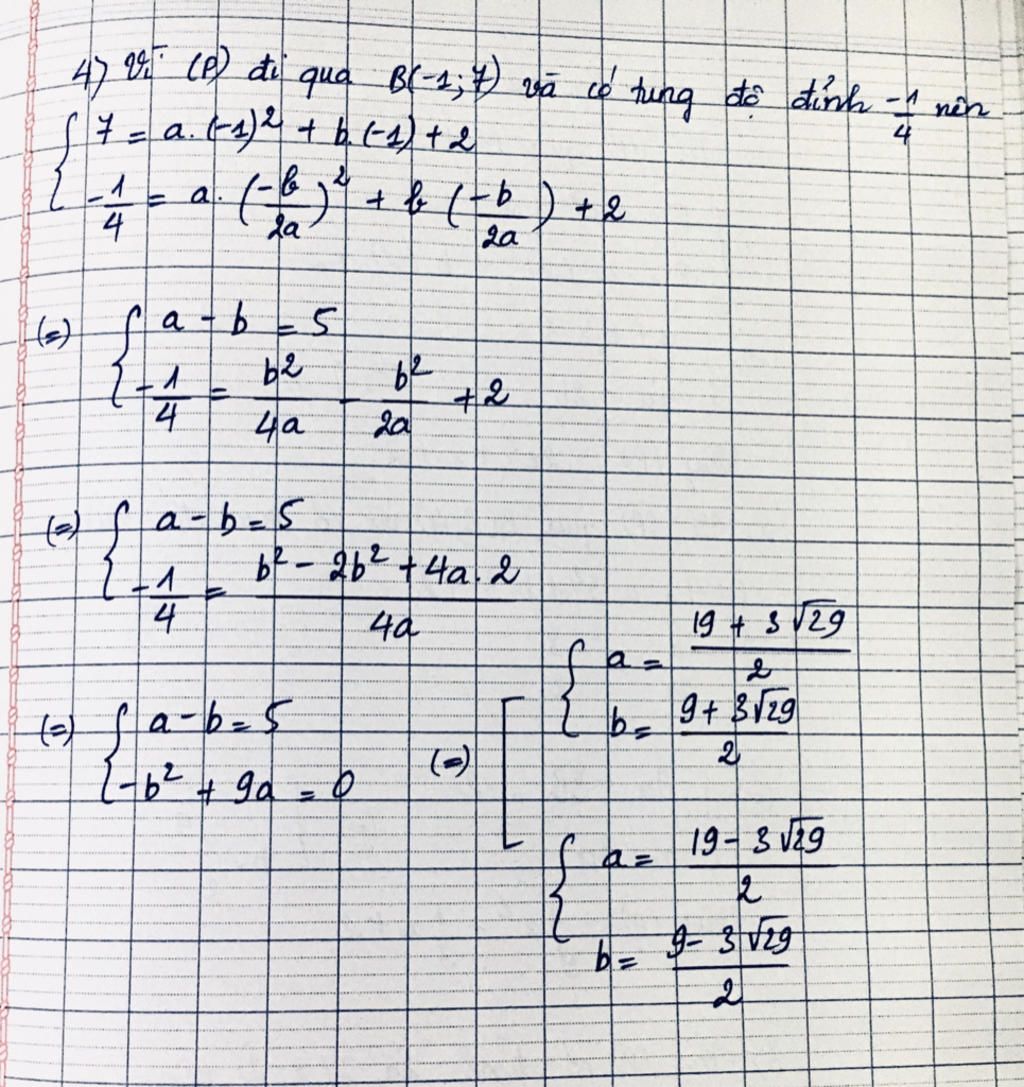 4) Vì (P) đi qua B(-1; 7) và có tung độ đỉnh -1/4 nên
{ 7 = a. (-1)² + b. (-1) + 2
{ -1/4 = a. (-b/2a)² + b (-b/2a) + 2
(=) { a - b = 5
{ -1/4 = b²/4a - b²/2a + 2
(=) { a - b = 5
{ -1/4 = (b² - 2b² + 4a. 2)/4a
(=) { a - b = 5
{ -b² + 9a = 0
(=) [ { a = (19 + 3√29)/2
{ b = (9 + 3√29)/2
{ a = (19 - 3√29)/2
{ b = (9 - 3√29)/2